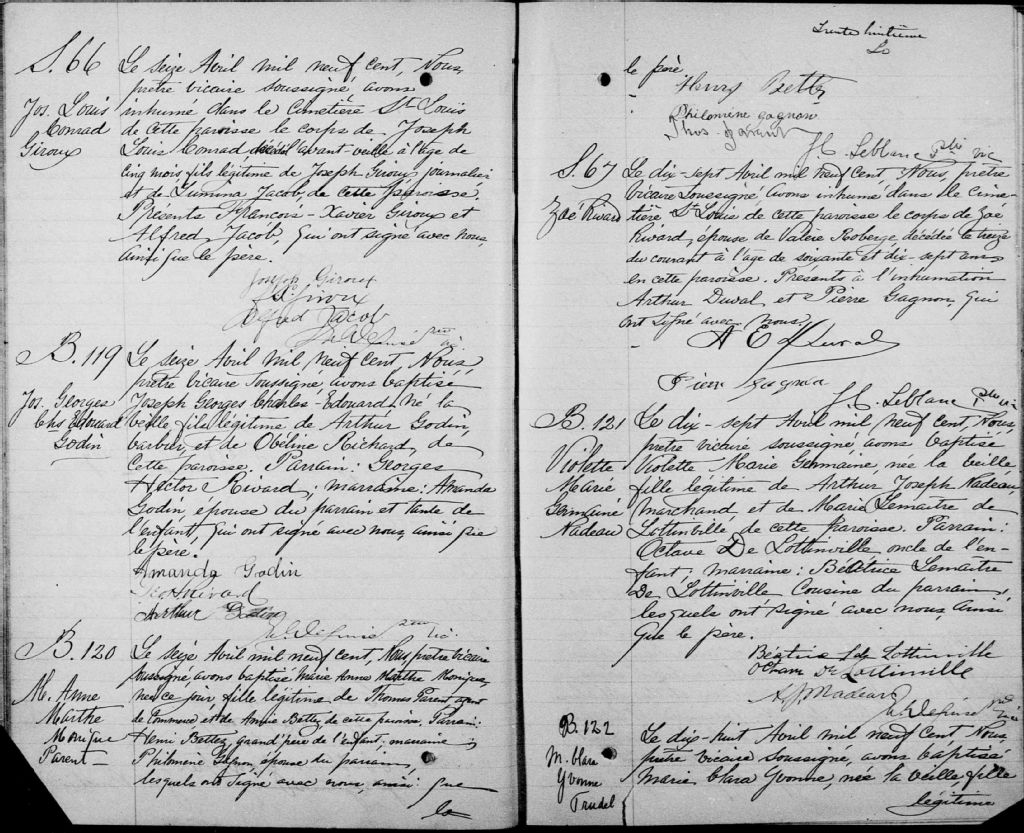 S. 66
Jos. Louis
Conrad
Giroux
Le seize Avril mil neuf cent, Nous,
prêtre vicaire soussigné, avons
inhumé dans le cimetière St Louis
de cette paroisse le corps de Joseph
Louis Conrad, avant-veille à l'âge de
cinq mois, fils légitime de Joseph Giroux journalier
et de Jacob, de cette paroisse.
Présents François-Xavier Giroux et
Alfred Jacob, qui ont signé avec nous,
ainsi que le père.
Joseph Giroux
Giroux
Alfred Jacob
B. 119
Jos. Georges
Chs Edouard
Godin
Le seize Avril mil neuf cent, Nous,
prêtre vicaire soussigné avons baptisé
Joseph Georges Charles-Edouard, né la
veille fils légitime de Arthur Godin,
barbier, et de Obéline Richard, de
cette paroisse. Parrain: Georges
Hector Rivard; marraine: Amanda
Godin, épouse du parrain et tante de
l'enfant, qui ont signé avec nous, ainsi que
le père.
Amanda Godin
Rivard
Arthur Godin
B. 120
M. Anne
Marthe
Monique
Parent
Le seize Avril mil neuf cent, Nous, prêtre vicaire
soussigné, avons baptisé Marie Anne Marthe Monique,
née ce jour, fille légitime de Thomas Parent, agent
de Commerce et de Annie Bettez de cette paroisse. Parrain:
Henri Bettez, grand'père de l'enfant; marraine
Philomène Gagnon épouse du parrain,
lesquels ont signé avec nous, ainsi que
le
Trente huitième
le père.
Henry Bettez
Philomène gagnon
Thos.
J.C. Leblanc Ptre vic
S. 67
Zoé Rivard
Le dix-sept Avril mil neuf cent, Nous, prêtre
vicaire soussigné, avons inhumé dans le cime-
tière St Louis de cette paroisse le corps de Zoé
Rivard, épouse de Valère Roberge, décédée le treize
du courant à l'âge de soixante et dix-sept ans
en cette paroisse. Présents à l'inhumation
Arthur Duval et Pierre Gagnon, qui
ont signé avec nous.
A E Duval
Pierre Gagnon
J.C. Leblanc, Ptre vic
B. 121
Violette
Marie
Germaine
Nadeau
Le dix-sept Avril mil neuf cent, Nous,
prêtre vicaire soussigné, avons baptisé
Violette Marie Germaine, née la veille
fille légitime de Arthur Joseph Nadeau,
marchand, et de Marie Lemaître
Lottinville de cette paroisse. Parrain:
Octave De Lottinville oncle de l'en-
fant; marraine: Béatrice Lemaître
De Lottinville Cousine du parrain,
lesquels ont signé avec nous, ainsi
que le père.
Béatrice Lottinville
Octave De Lottinville
Nadeau
B. 122
M. Clara
Yvonne
Trudel
Le dix-huit Avril mil neuf cent Nous
prêtre vicaire soussigné, avons baptisé
Marie Clara Yvonne, née la veille fille
légitime